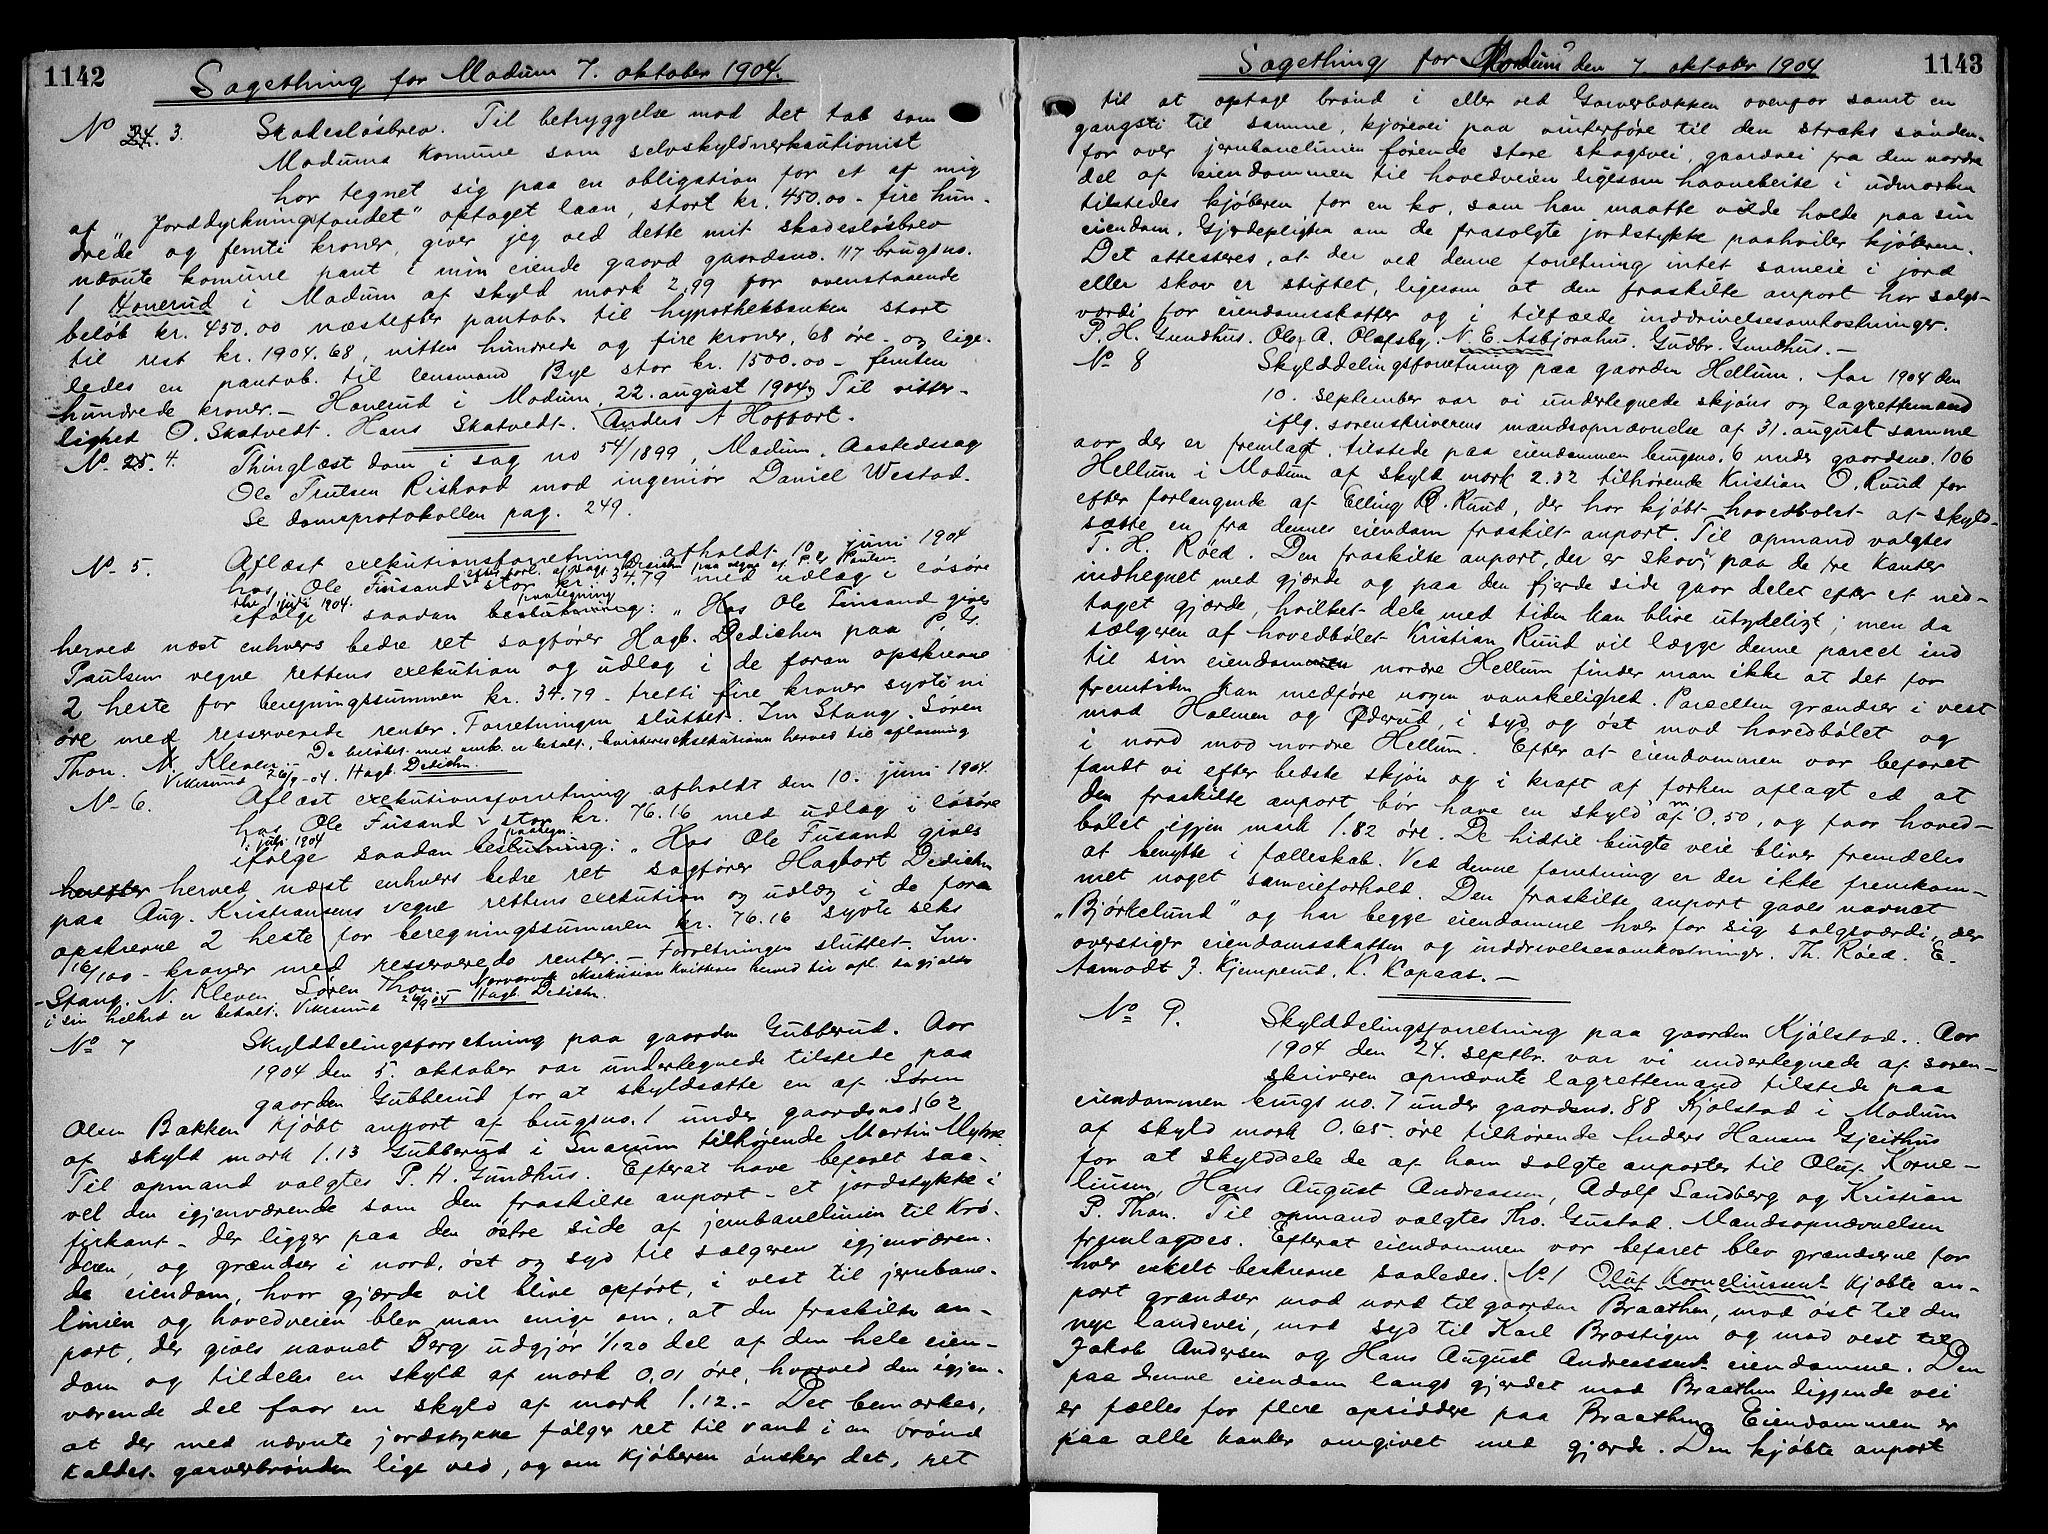 1142
Sagething for Modum 7. oktober 1904.
No 24. 3. Skadesløsbrev. Til betryggelse mod det tab som
Modums komune som selvskyldnerkautionist
har tegnet sig paa en obligation for et af mig
af "Jorddyrkningsfondet" optaget laan, stort kr. 450.00 - fire hun-
drede og femti kroner, giver jeg ved dette mit skadesløsbrev
nævnte komune pant i min eiende gaard gaardsno. 117 brugsno.
1 Honerud i Modum af skyld mark 2,99 for ovenstaaende
beløb kr. 450.00 næstefter pantob. til hypothekbanken stort
til rest kr. 1904.68, nitten hundrede og fire kroner, 68 øre - og lige-
ledes en pantob. til lensmand Bye stor kr. 1500.00 - femten
hundrede kroner. - Honerud i Modum, 22. august 1904. Til vitter-
lighed O. Skatvedt. Hans Skatvedt. Anders A Hoffart.
No. 25. 4. Thinglæst dom i sag no 54/1899, Modum, Aastedssag
Ole Trulsen Rishovd mod ingeniør Daniel Westad.
Se domsprotokollen pag. 249.
No 5. Aflæst exekutionsforretning afholdt 10 juni 1904
efter forl. af Hagb. Dedichen paa vegne af P. Chr. Paulsen
hos Ole Fusand stor kr. 34.79 med udlag i løsøre
1 juli 1904. paategning
ifølge saadan beslutning: "Hos Ole Fusand gives
herved næst enhvers bedre ret sagfører Hagb. Dedichen paa P. Chr.
Paulsen vegne rettens exekution og udlæg i de foran opskrevne
2 heste for beregningssummen kr. 34.79 - tretti fire kroner sytti ni
øre med resserverede renter. Forretningen sluttet. Im Stang. Søren
Thon. N. Kleven. - Da beløbet med omk. er betalt, kvitteres eksekutionen herved til aflæsning
Vikesund 26/9-04. Hagb. Dedichen.
No 6. Aflæst exekutionsforretning afholdt den 10. juni 1904.
hos Ole Fusand stor kr. 76.16 med udlæg i løsøre
1. juli 1904 paategn.
ifølge saadan beslutning: "Hos Ole Fusand gives
herefter herved næst enhvers bedre ret sagfører Hagbart Dedichen
paa Aug. Kristiansens vegne rettens exekution og udlæg i de foran
opskrevne 2 heste for beregningssummen kr. 76.16 sytti seks
16/100 - kroner med resserverede renter. - Forretningen sluttet. Im.
Stang. N. Kleven Søren Thon. - Nærværende eksekution kvitteres herved til afl. da gjælden
i sin helhed er betalt. Vikesund 26/9 04 Hagb. Dedichen.
No 7 Skylddelingsforretning paa gaarden Gubberud. Aar
1904 den 5. oktober var undertegnede tilstede paa
gaarden Gubberud for at skyldsætte en af Søren
Olsen Bakken kjøbt anport af brugsno. 1 under gaardsno. 162
af skyld mark 1.13 Gubberud i Snarum tilhørende Martin Myhre.
Til opmand valgtes P. H. Gundhus. Efterat have befaret saa-
vel den igjenværende som den fraskilte anport - et jordstykke i
firkant - der ligger paa den østre side af jernbanelinien til Krø-
deren, og grændser i nord, øst og syd til sælgerens igjenværen-
de eiendom, hvor gjærde vil blive opført, i vest til jernbane-
linien og hovedveien blev man enige om, at den fraskilte an-
port, der gives navnet Berg udgjør 1/120 del af den hele eien-
dom og tildeles en skyld af mark 0,01 øre, hvorved den igjen-
værende del faar en skyld af mark 1.12. - Det bemærkes,
at der med nævnte jordstykke følger ret til vand i en brønd
kaldet garverbrønden lige ved, og om kjøberen ønsker det, ret
1143
Sagething for Modum den 7. oktober 1904
til at optage brønd i eller ved Garverbækken ovenfor samt en
gangsti til samme, kjørevei paa vinterføre til den straks sønden-
for over jernbanelinien førende store skogsvei, gaardvei fra den nordre
del af eiendommen til hovedveien ligesom havnebeite i udmarken
tilstedes kjøberen for en ko, som han maatte ville holde paa sin
eiendom. Gjerdepligten om de frasolgte jordstykke paahviler kjøberen.
Det attesteres, at der ved denne forretning intet sameie i jord
eller skov er stiftet, ligesom at den fraskilte anport har salgs-
værdi for eiendomsskatter og i tilfælde inddrivelsesomkostninger.
P. H. Gundhus. Ole A. Olafsby. N. E. Asbjørnhus. Gudbr. Gundhus. -
No 8 Skylddelingsforretning paa gaarden Hellum. Aar 1904 den
10. september var vi undertegnede skjøns og lagrettemænd
iflg. sorenskriverens mandsopnævnelse af 31. august samme
aar der er fremlagt, tilstede paa eiendommen brugsno. 6 under gaardsno. 106
Hellum i Modum af skyld mark 2.32 tilhørende Kristian O. Ruud for
efter forlangende af Elling O. Ruud, der har kjøbt hovedbølet at skyld-
sætte en fra dennes eiendom fraskilt anport. Til opmand valgtes
T. H. Røed. Den fraskilte anport, der er skov, paa de tre kanter
indhegnet med gjærde og paa den fjerde side gaar delet efter et ned-
taget gjærde, hvilket dele med tiden kan blive utydeligt; men da
sælgeren af hovedbølet Kristian Ruud vil lægge denne parcel ind
til sin eiendom nordre Hellum finder man ikke at det for
fremtiden kan medføre nogen vanskelighed. Parcellen grændser i vest
mod Holmen og Øderud, i syd og øst mod hovedbølet og
i nord mod nordre Hellum. Efter at eiendommen var befaret
fandt vi efter bedste skjøn og i kraft af forhen aflagt ed at
den fraskilte anport bør have en skyld af m. 0.50, og faar hoved-
bølet igjen mark 1.82 øre. De hidtil brugte veie bliver fremdeles
at benytte i fælleskab. Ved denne forretning er der ikke fremkom-
met noget sameieforhold. Den fraskilte anport gaves navnet
"Bjørkelund" og har begge eiendomme hver for sig salgsværdi, der
overstiger eiendomsskatten og inddrivelsesomkostninger. Th. Røed. E.
Aamodt J. Kjemperud. K. Kopaas. -
No 9. Skylddelingsforretning paa gaarden Kjølstad. Aar
1904 den 24. septbr. var vi undertegnede af soren-
skriveren opnævnte lagrettemænd tilstede paa
eiendommen brugs no. 7 under gaardsno. 88 Kjølstad i Modum
af skyld mark 0.65 øre tilhørende Anders Hansen Gjeithus
for at skylddele de af ham solgte anporter til Oluf Korne-
liusen, Hans August Andreassen, Adolf Sandberg og Kristian
P. Thon. Til opmand valgtes Tho. Gustad. Mandsopnævnelsen
fremlagdes. Efterat eiendommen var befaret blev grændserne for
hver enkelt beskrevne saaledes. No 1 Oluf Korneliussens kjøbte an-
port grændser mod nord til gaarden Braathen, mod øst til den
nye landevei, mod syd til Karl Brostigen og mod vest til
Jakob Andersen og Hans August Andreassens eiendomme. Den
paa denne eiendom langs gjerdet mod Braathen liggende vei
er fælles for flere opsiddere paa Braathen. Eiendommen er
paa alle kanter omgivet med gjærde. Den kjøbte anport